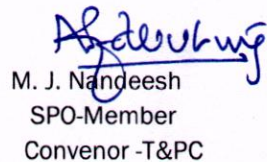 M. J. Nandeesh
SPO-Member
Convenor -T&PC